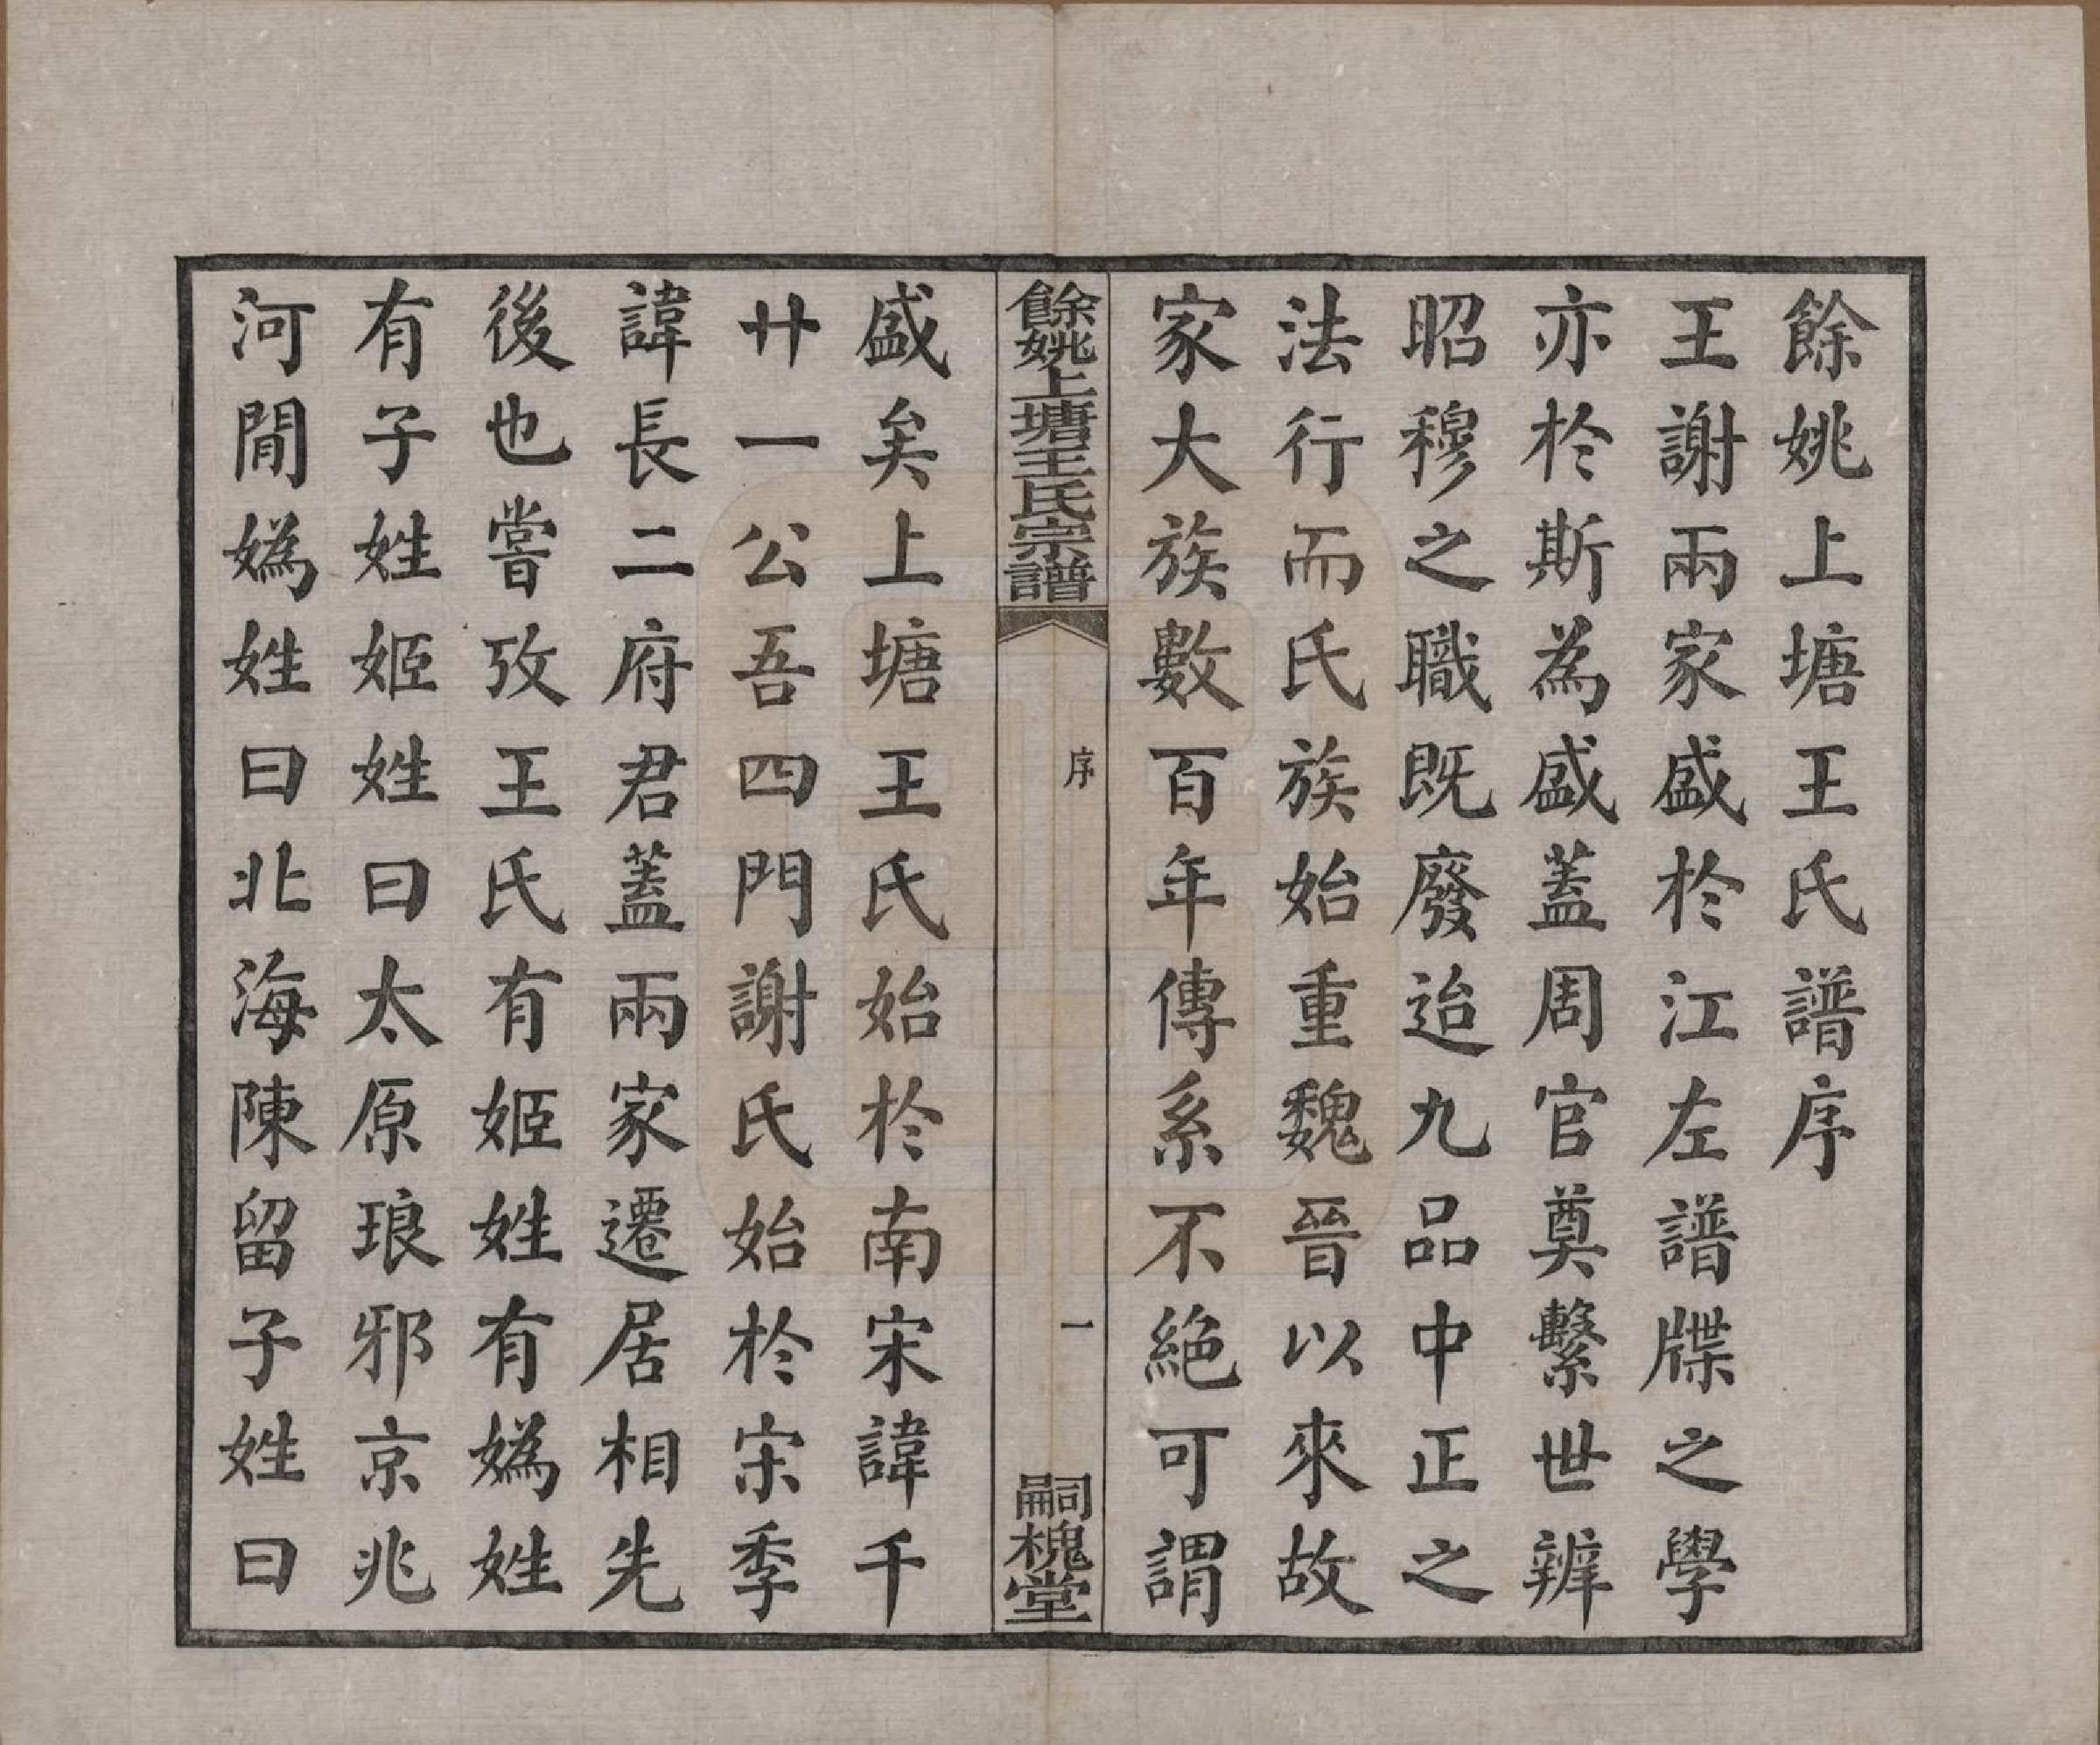 餘姚上塘王氏譜序
王謝兩家盛於江左譜牒之學
亦於斯為盛蓋周官奠繫世辨
昭穆之職既廢迨九品中正之
法行而氏族始重魏晉以來故
家大族數百年傳系不絕可謂
餘姚上塘王氏宗譜
序
一
嗣槐堂
盛矣上塘王氏始於南宋諱千
廿一公吾四門謝氏始於宋季
諱長二府君蓋兩家遷居相先
後也嘗攷王氏有姬姓有媯姓
有子姓姬姓曰太原琅邪京兆
河閒媯姓曰北海陳留子姓曰